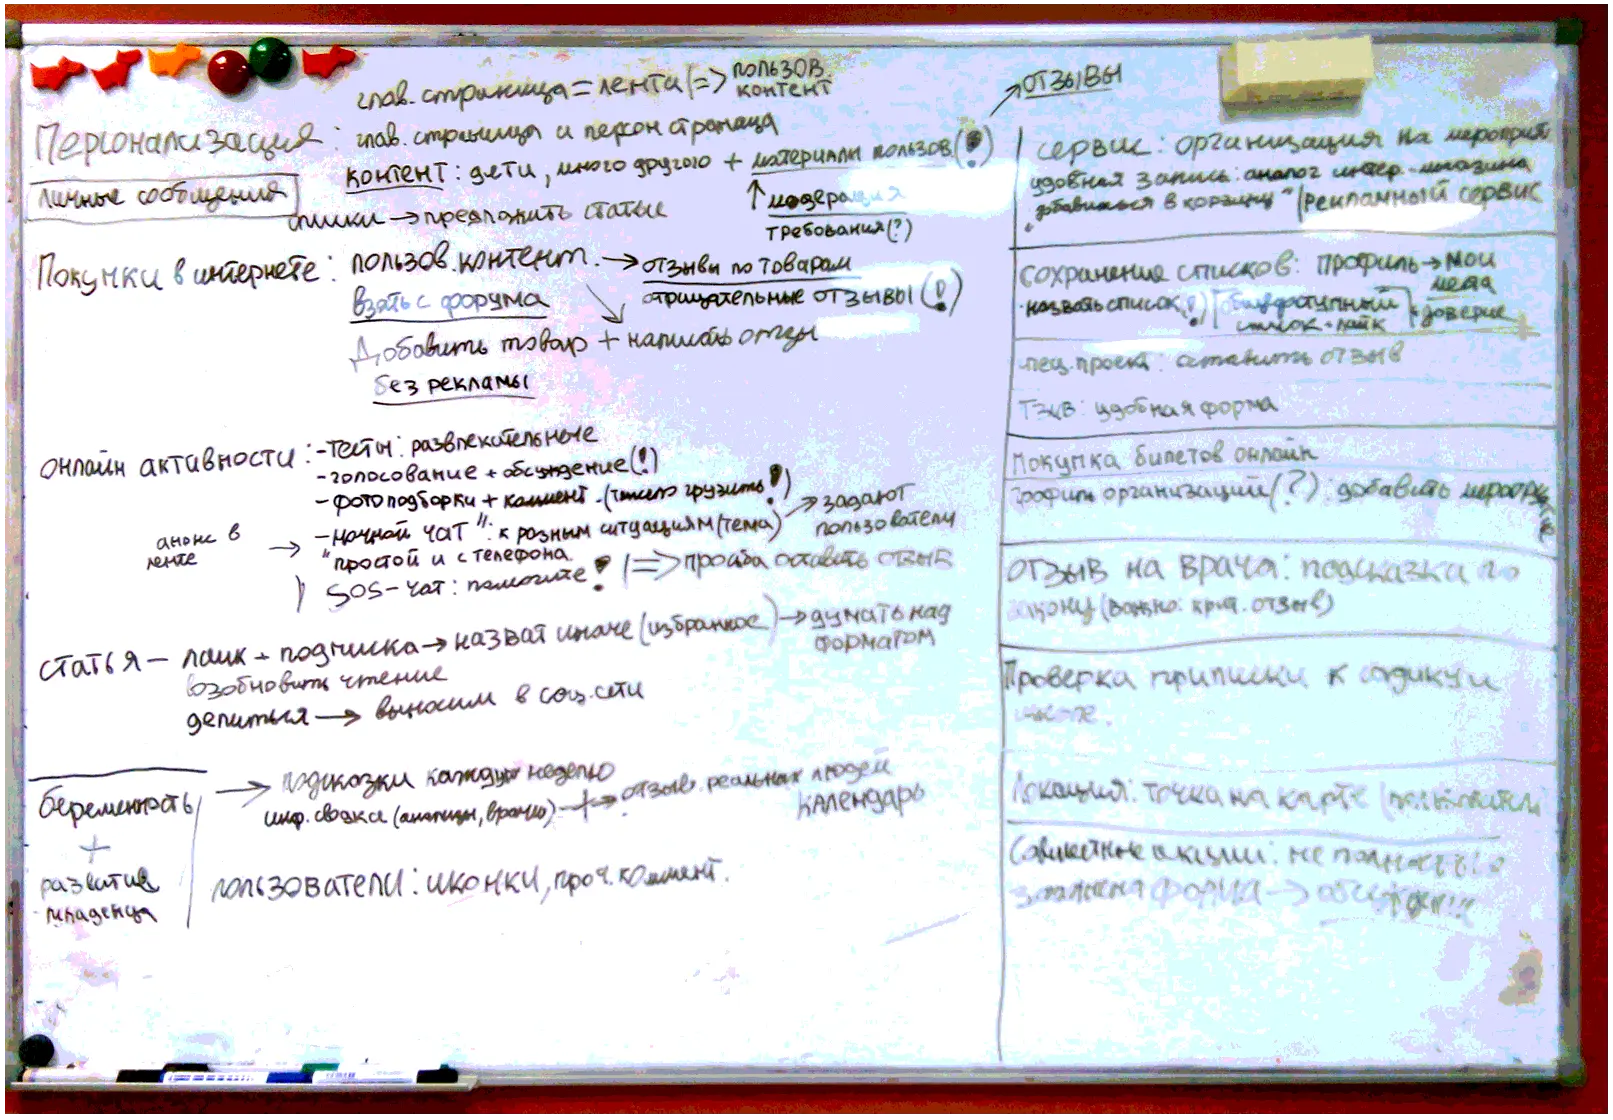 глав. страница = лента |=> пользов. контент
Персонализация: глав. страница и персон страница
контент: дети, много другого + материалы пользов. (!) → отзывы
личные сообщения
↑ модерация
списки → предложить статьи
требования (?)
Покупки в интернете: пользов. контент. → отзывы по товарам
взять с форума
отрицательные отзывы (!)
Добавить товар + написать отзы
без рекламы
онлайн активности: - тесты: развлекательные
- голосование + обсуждение (!)
- фотоподборки + коммент. (тяжело грузить!)
анонс в ленте →
- "ночной чат": к разным ситуациям (тема) → задают пользователи
простой и с телефона
SOS-чат: помогите! |=> просьба оставить отзыв
статья — лайк + подписка → назват иначе (избранное) → думать над форматом
возобновить чтение
делиться → выносим в соц. сети
беременность
+
развитие
младенца
→ подсказки каждую неделю
инф. сводка (анализы, врачи) + → отзыв. реальных людей
календарь
пользователи: иконки, проч. коммент.
сервис: организация на мероприят
удобная запись: аналог интер-магазина
"добавиться в корзину" / рекламный сервис
сохранение списков: профиль → мои места
назвать список (!) общедоступный список - лайк доверие
спец. проект: оставить отзыв
удобная форма
Покупка билетов онлайн
профиль организаций (?): добавить меропр
отзыв на врача: подсказка по
закону (важно: кр-д. отзыв)
Проверка приписки к садику и
Локация: точка на карте
Совместные акции: не полностью
форма →